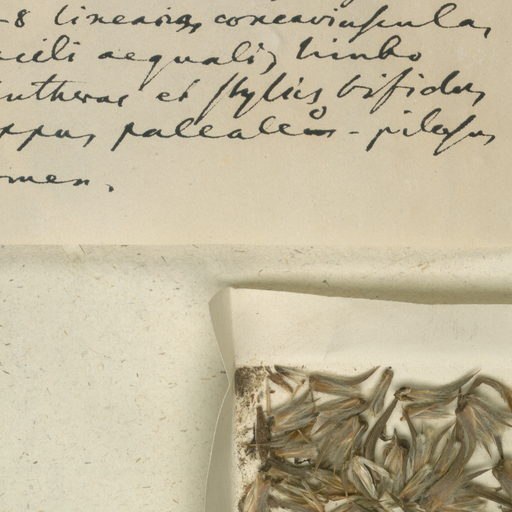 -8 linearia, concaviuscula,
aequali, limbo
antherae et stylus bifidus,
pappus paleaceus - pilosus